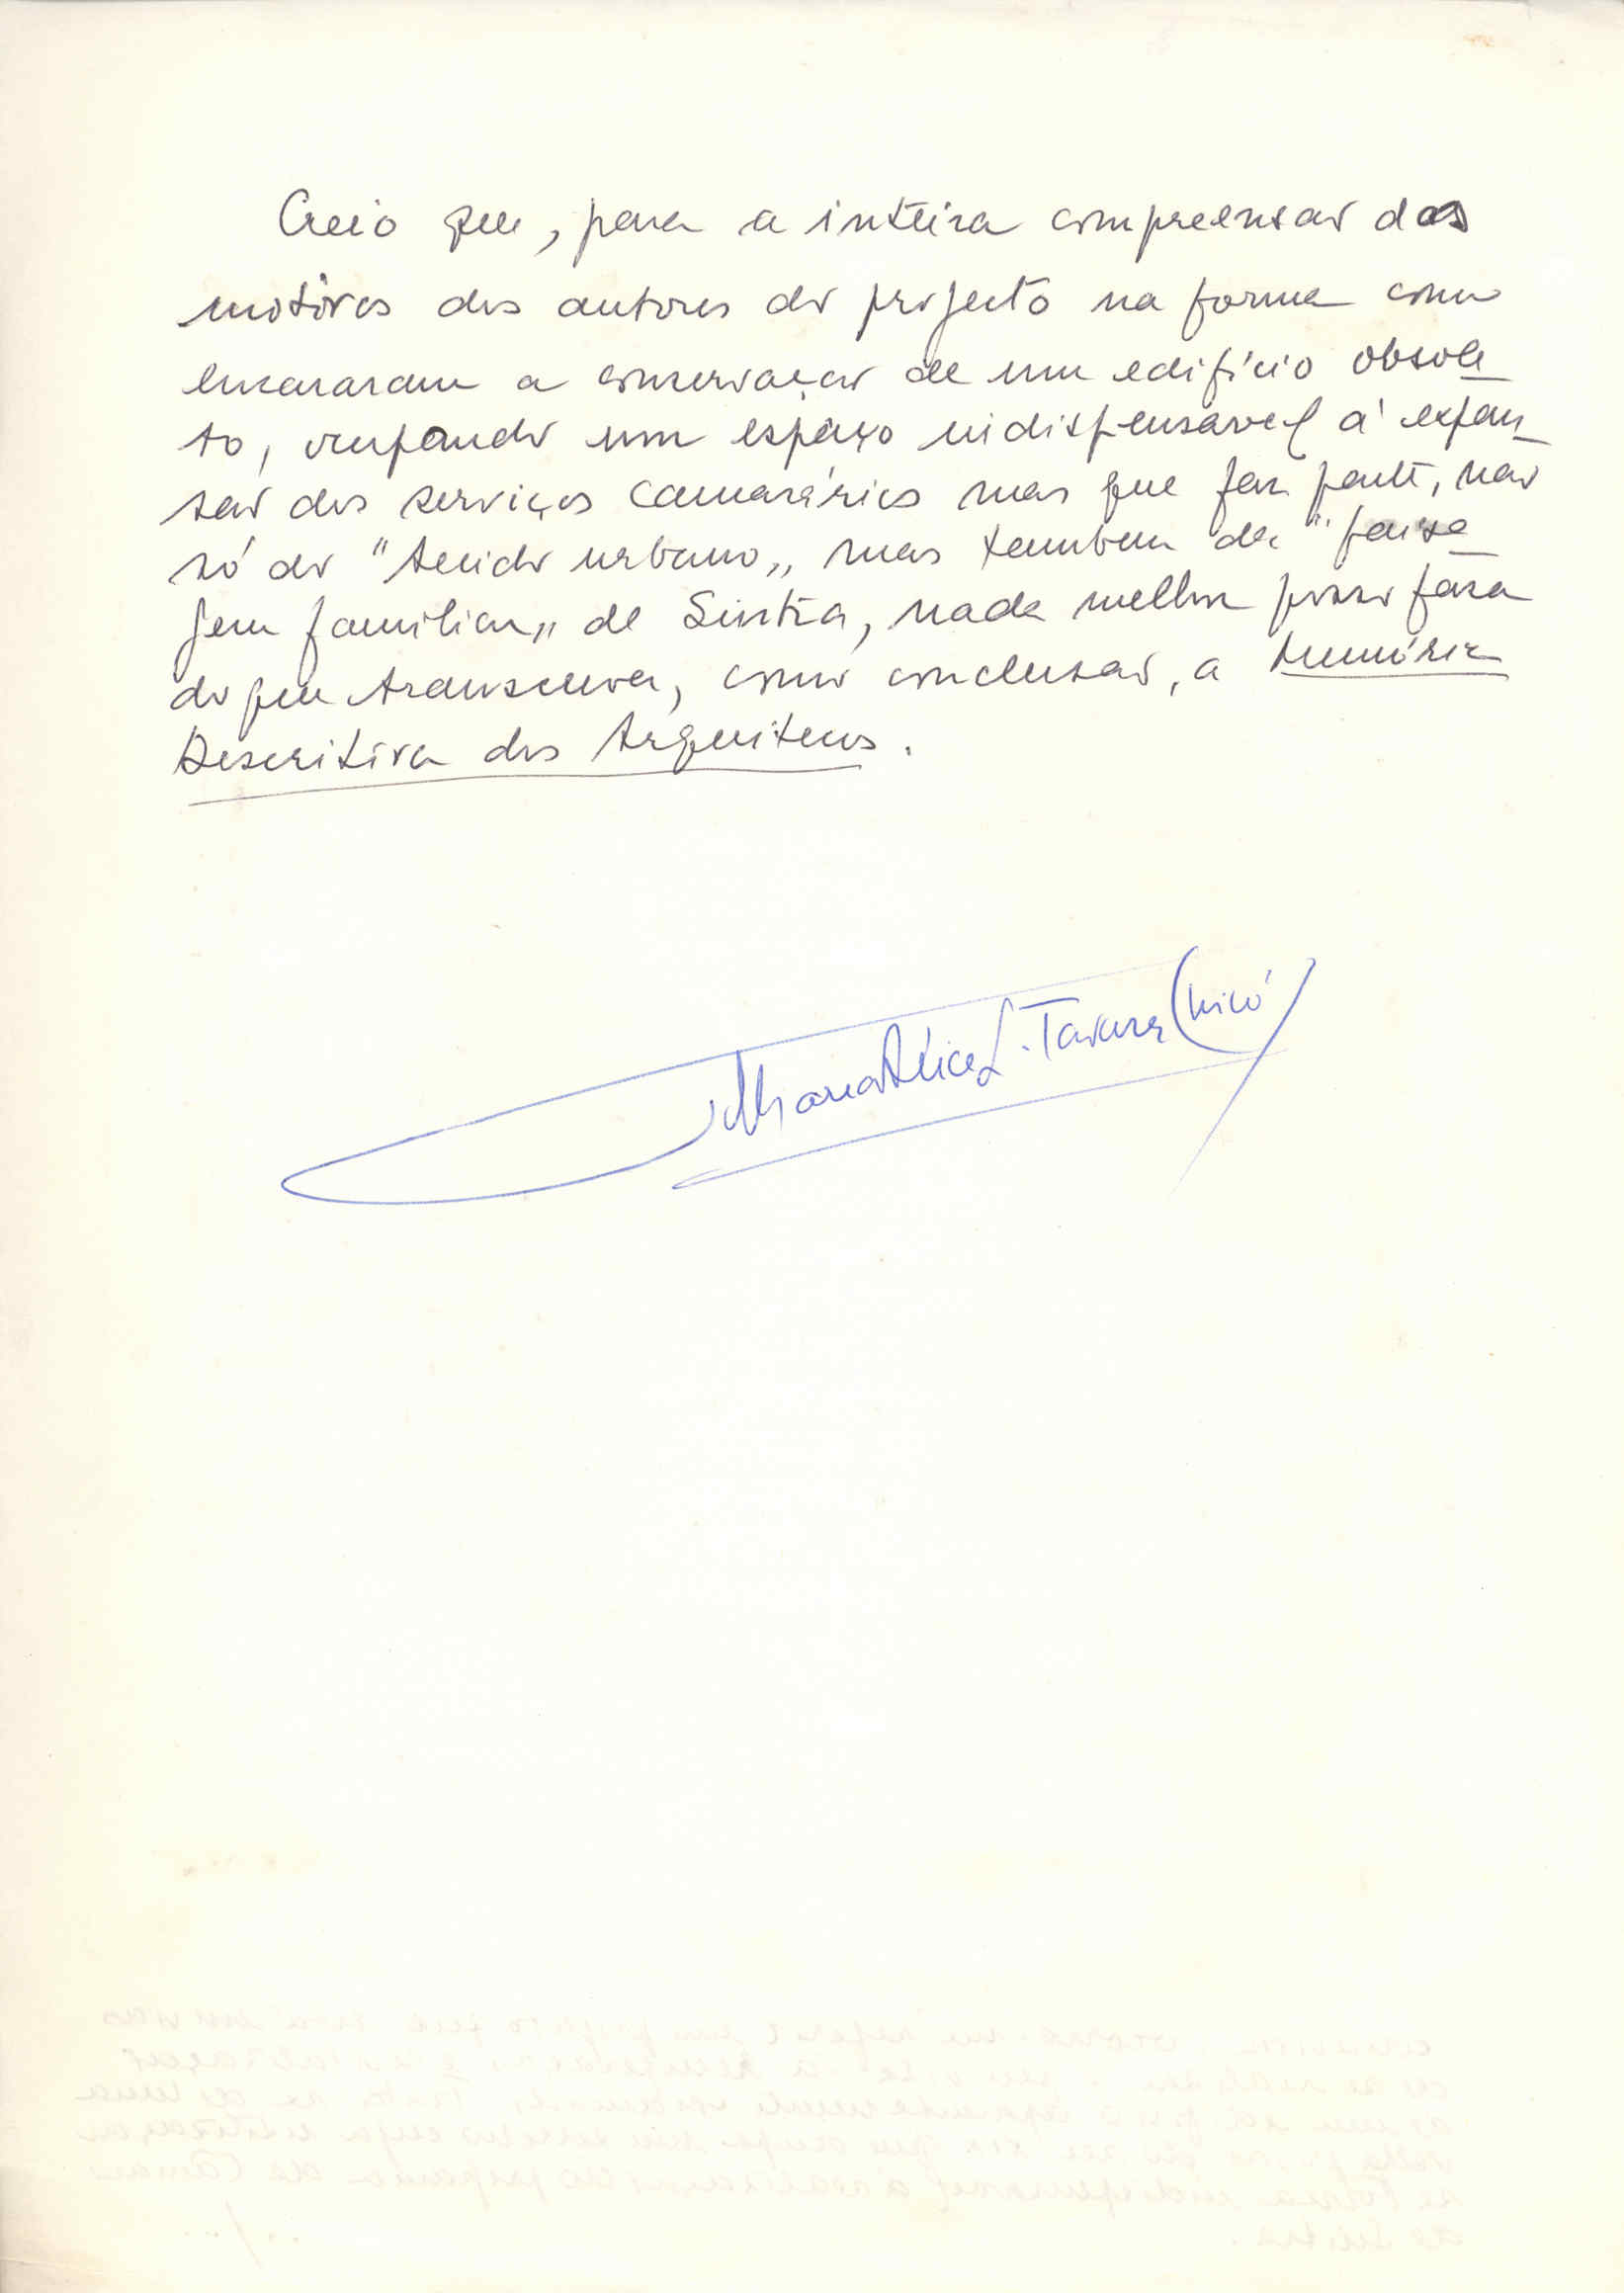 Creio que, para a inteira compreensão dos
motivos dos autores do projecto na forma como
encararam a conservação de um edifício obsole
to, ocupando um espaço indispensável à expan
são dos serviços camarários mas que faz parte, não
só do "tecido urbano„ mas tambem da "paisa
gem familiar„ de Sintra, nada melhor posso fazer
do que transcrever, como conclusão, a Memória
Descritiva dos Arquitectos.
Maria Alice L. Tavares Chicó